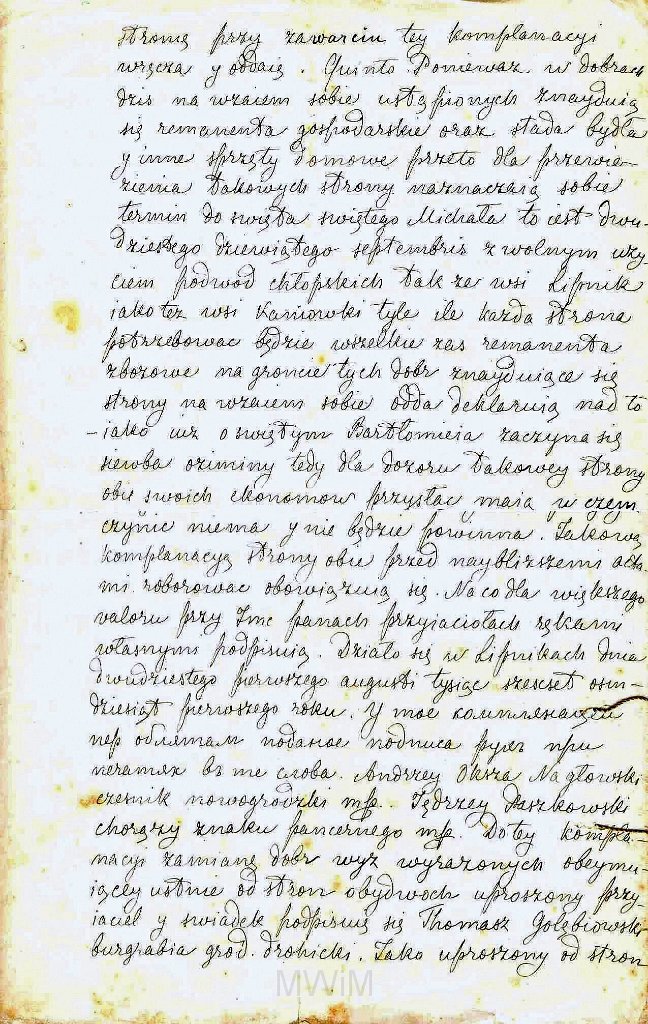 stronę przy zawarciu tey komplanacyi
wręcza y oddaię. Quinto Poniewaz w dobrach
dzis na wzaiem sobie ustąpionych znayduią
się remanenta gospodarskie oraz stada bydła
y inne sprzęty domowe przeto dla przewie-
zienia takowych strony naznaczaią sobie
termin do swięta swiętego Michała to iest dwu-
dziestego dziewiątego septembris z wolnym uży-
ciem podwod chłopskich tak ze wsi Lipnik
iako tez wsi Kaniowki tyle ile kazda strona
potrzebowac będzie wszelkie zas remanenta
zbozowe na groncie tych dobr znayduiące się
strony na wzaiem sobie odda deklaruią nad to
-iako iuz o swiętym Bartłomieia zaczyna się
siewba oziminy tedy dla dozoru takowey strony
obie swoich ekonomow przysłac maią y czem
czynic niema y nie będzie powinna. Takową
komplanacyą strony obie przed naybliższemi acta-
mi roborowac obowiązuią się. Na co dla większego
waloru przy Imc panach przyiaciołach rękami
własnymi podpisuią. Działo się w Lipnikach dnia
dwudziestego pierwszego augusti tysiąc szescset osm-
dziesiąt pierwszego roku. У тое комплянацыи
пер облятам поданое подписа рукъ при
печатях въ те слова. Andrzey Oksza Nagłowski
czesnik nowogrodzki mp. Jędrzey Daszkowski
chorąży znaku pancernego mp. Do tey kompla-
nacyi zamianę dobr wyz wyrazonych obeymu-
iącey ustnie od stron obydwoch uproszony przy-
iaciel y swiadek podpisuię się Thomasz Gołębiowski
burgrabia grod. drohicki. Jako uproszony od stron
MWiM